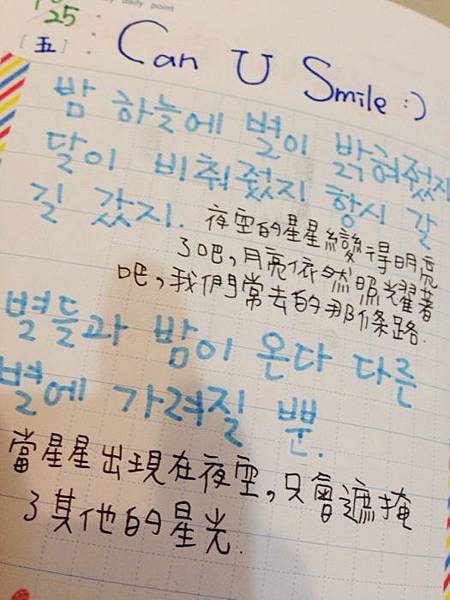 daily point
25
[五]
Can U Smile :)
밤 하늘에 별이 밝혀줬지
달이 비춰줬지 항시 갈
길 갔지.
夜空的星星變得明亮
了吧,月亮依然照耀著
吧,我們常去的那條路.
별들과 밤이 온다 다른
별에 가려질 뿐.
當星星出現在夜空,只會遮掩
了其他的星光.